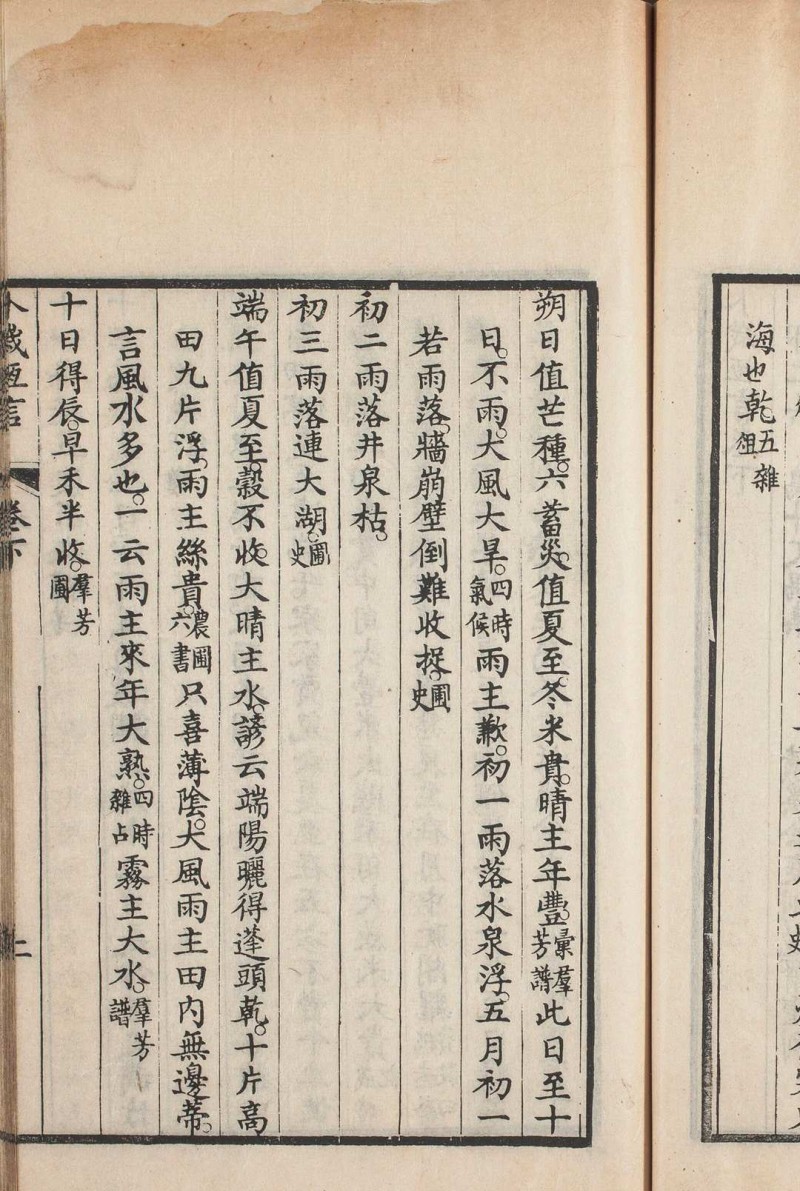 海也乾五雜俎
朔日值芒種。六蓄災。值夏至。冬米貴。晴主年豐。彙羣芳譜此日至十
日。不雨。大風大旱。四時氣候雨主歉。初一雨落水泉浮。五月初一
若雨落。牆崩壁倒難收捉。圃史
初二雨落井泉枯。
初三雨落連大湖。圃史
端午值夏至。穀不收。大晴主水。諺云端陽曬得蓬頭乾。十片高
田九片浮。雨主絲貴。農圃六書只喜薄陰。大風雨主田內無邊蒂。
言風水多也。一云雨主來年大熟。四時雜占霧主大水。羣芳譜
十日得辰。早禾半收。羣芳圃
卜歲恆言 卷下